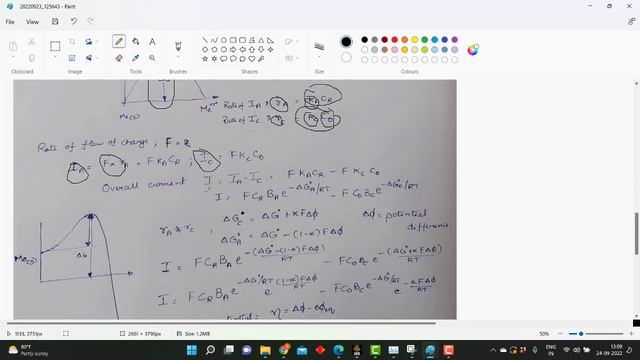 20220923_125643 - Paint
File View
Clipboard Image Tools Brushes Shapes Size Colours
Me(s) Me
Rate of IA, rA = kA CR
Rate of IC, rC = kC CO
Rate of flow of charge; F =
IA = F x rA = F kA CR ; IC = F kC CO
Overall current I = IA - IC = F kA CR - F kC CO
I = F CR BA e^-ΔG*A/RT - F CO BC e^-ΔG*C/RT
rA ≠ rC , ΔG*C = ΔG* + αFΔϕ Δϕ = potential
ΔG*A = ΔG* - (1-α)FΔϕ difference
Me(s) ΔG
I = F CR BA e^-(ΔG*-(1-α)FΔϕ)/RT - F CO BC e^-(ΔG*+αFΔϕ)/RT
I = F CR BA e^-ΔG*/RT e^(1-α)FΔϕ/RT - F CO BC e^-ΔG*/RT e^-αFΔϕ/RT
η = Δϕ - Δϕeq
1133, 2751px 2661 × 3796px Size: 1.2MB 50%
80°F
Partly sunny
ENG
IN
13:09
24-09-2022